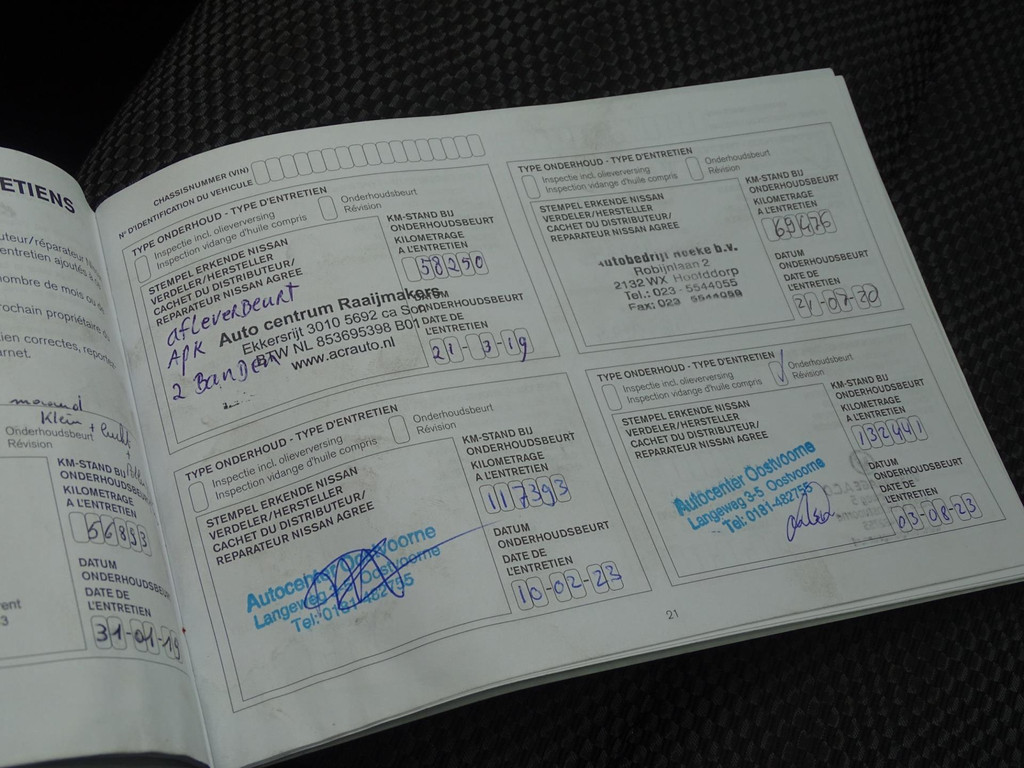 ETIENS
uteur/réparateur
entretien ajoutés à
nombre de mois ou
prochain propriétaire
ien correctes,
arnet.
Klein +
Onderhoudsbeurt
Révision
KM-STAND BIJ
ONDERHOUDSBEURT
KILOMETRAGE
A L'ENTRETIEN
56853
DATUM
ONDERHOUDSBEURT
DATE DE
L'ENTRETIEN
31-01-19
CHASSISNUMMER (VIN)
N° D'IDENTIFICATION DU VEHICULE
TYPE ONDERHOUD - TYPE D'ENTRETIEN
Inspectie incl. olieverversing
Inspection vidange d'huile compris
Onderhoudsbeurt
Révision
STEMPEL ERKENDE NISSAN
VERDELER/HERSTELLER
CACHET DU DISTRIBUTEUR/
REPARATEUR NISSAN AGREE
KM-STAND BIJ
ONDERHOUDSBEURT
KILOMETRAGE
A L'ENTRETIEN
58250
afleverbeurt
APK
2 Banden
Auto centrum Raaijmakers
Ekkersrijt 3010 5692 ca Son
BTW NL 853695398 B01
www.acrauto.nl
DATUM
ONDERHOUDSBEURT
DATE DE
L'ENTRETIEN
21-3-19
TYPE ONDERHOUD - TYPE D'ENTRETIEN
Inspectie incl. olieverversing
Inspection vidange d'huile compris
Onderhoudsbeurt
Révision
STEMPEL ERKENDE NISSAN
VERDELER/HERSTELLER
CACHET DU DISTRIBUTEUR/
REPARATEUR NISSAN AGREE
KM-STAND BIJ
ONDERHOUDSBEURT
KILOMETRAGE
A L'ENTRETIEN
69476
Autobedrijf Reeke b.v.
Robijnlaan 2
2132 WX Hoofddorp
Tel.: 023 - 5544055
Fax: 023 - 5544099
DATUM
ONDERHOUDSBEURT
DATE DE
L'ENTRETIEN
21-07-20
TYPE ONDERHOUD - TYPE D'ENTRETIEN
Inspectie incl. olieverversing
Inspection vidange d'huile compris
Onderhoudsbeurt
Révision
STEMPEL ERKENDE NISSAN
VERDELER/HERSTELLER
CACHET DU DISTRIBUTEUR/
REPARATEUR NISSAN AGREE
KM-STAND BIJ
ONDERHOUDSBEURT
KILOMETRAGE
A L'ENTRETIEN
117393
Autocenter Oostvoorne
Langeweg 3-5 Oostvoorne
Tel: 0181-482755
DATUM
ONDERHOUDSBEURT
DATE DE
L'ENTRETIEN
10-02-23
TYPE ONDERHOUD - TYPE D'ENTRETIEN
Inspectie incl. olieverversing
Inspection vidange d'huile compris
Onderhoudsbeurt
Révision
STEMPEL ERKENDE NISSAN
VERDELER/HERSTELLER
CACHET DU DISTRIBUTEUR/
REPARATEUR NISSAN AGREE
KM-STAND BIJ
ONDERHOUDSBEURT
KILOMETRAGE
A L'ENTRETIEN
132441
Autocenter Oostvoorne
Langeweg 3-5 Oostvoorne
Tel: 0181-482755
DATUM
ONDERHOUDSBEURT
DATE DE
L'ENTRETIEN
03-08-23
21